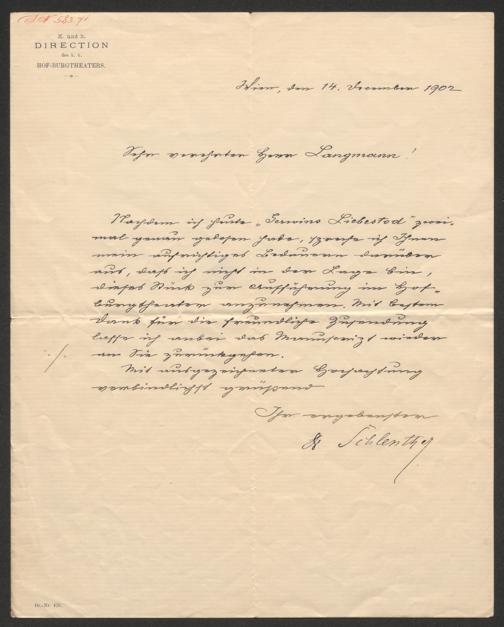 K. und k.
DIRECTION
des k. k.
HOF-BURGTHEATERS.
Wien, den 14. December 1902
Sehr verehrter Herr Langmann!
Nachdem ich heute „Gerwins Liebestod" zwei-
mal genau gelesen habe, spreche ich Ihnen
mein aufrichtiges Bedauern darüber
aus, daß ich nicht in der Lage bin,
dieses Stück zur Aufführung im Hof-
burgtheater anzunehmen. Mit bestem
Dank für die freundliche Zusendung
lasse ich anbei das Manuscript wieder
an Sie zurückgehen.
Mit ausgezeichneter Hochachtung
verbindlichst grüßend
Ihr ergebenster
Schlenther